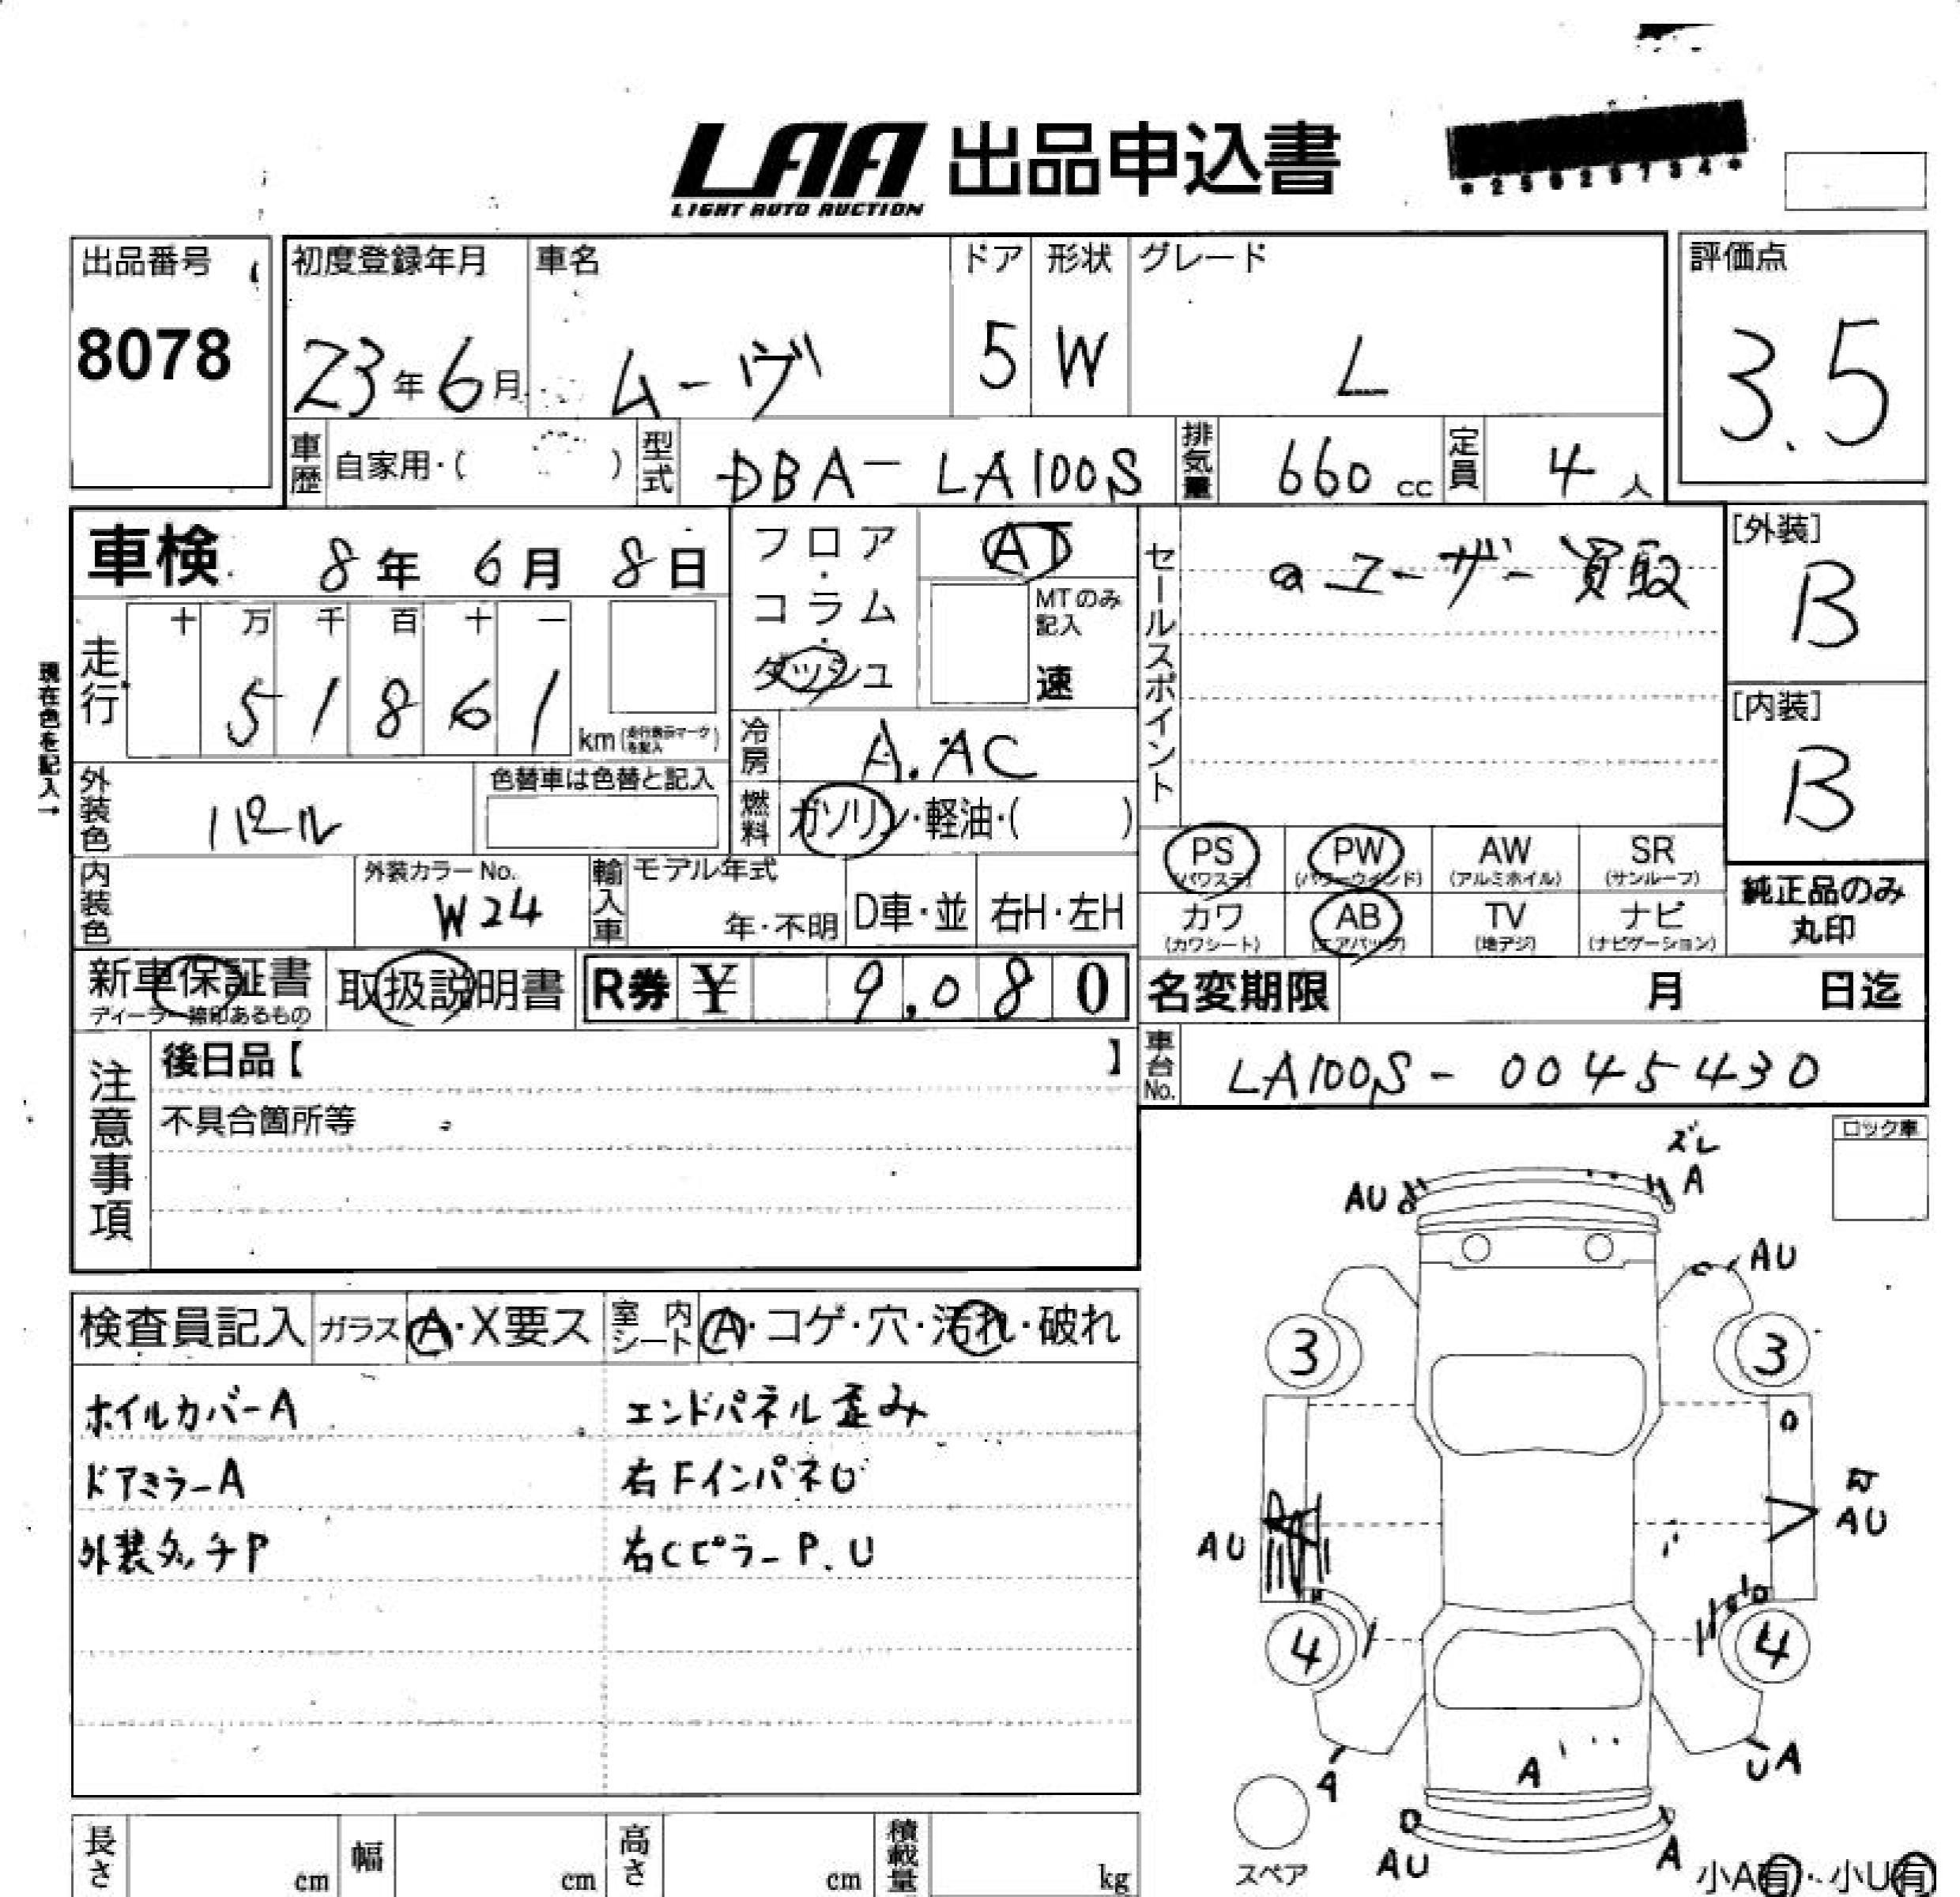 LAA 出品申込書
LIGHT AUTO AUCTION
出品番号
8078
初度登録年月 車名 ドア 形状 グレード
23年6月 ムーヴ 5 W L
評価点
3.5
車歴 自家用・( ) 型式 DBA-LA100S 排気量 660 cc 定員 4人
車検 8年 6月 8日
フロア・コラム・ダッシュ
AT
MTのみ記入
速
セールスポイント
ユーザー買取
[外装]
B
[内装]
B
現在色を記入→
走行
十 万 千 百 十 一
5 1 8 6 1 km
冷房 A.AC
外装色 パール
色替車は色替と記入
燃料 ガソリン・軽油・( )
内装色
外装カラーNo.
W24
輸入車 モデル年式
年・不明 D車・並 右H・左H
PS (パワステ) PW (パワーウィンド) AW (アルミホイル) SR (サンルーフ)
カワ (カワシート) AB (エアバッグ) TV (地デジ) ナビ (ナビゲーション)
純正品のみ
丸印
新車保証書
ディーラー捺印あるもの
取扱説明書
R券 ¥ 9,080
名変期限 月 日迄
車台No. LA100S-0045430
注意事項
後日品【 】
不具合箇所等
ロック車
検査員記入 ガラス A・X要ス 室内シート A・コゲ・穴・汚れ・破れ
ホイルカバーA エンドパネル歪み
ドアミラーA 右FインパネU
外装タッチP 右CピラーP.U
ズレ
AU A
AU
3 3
AU AU
4 4
A A UA
スペア AU A
小A有・小U有
長さ cm 幅 cm 高さ cm 積載量 kg